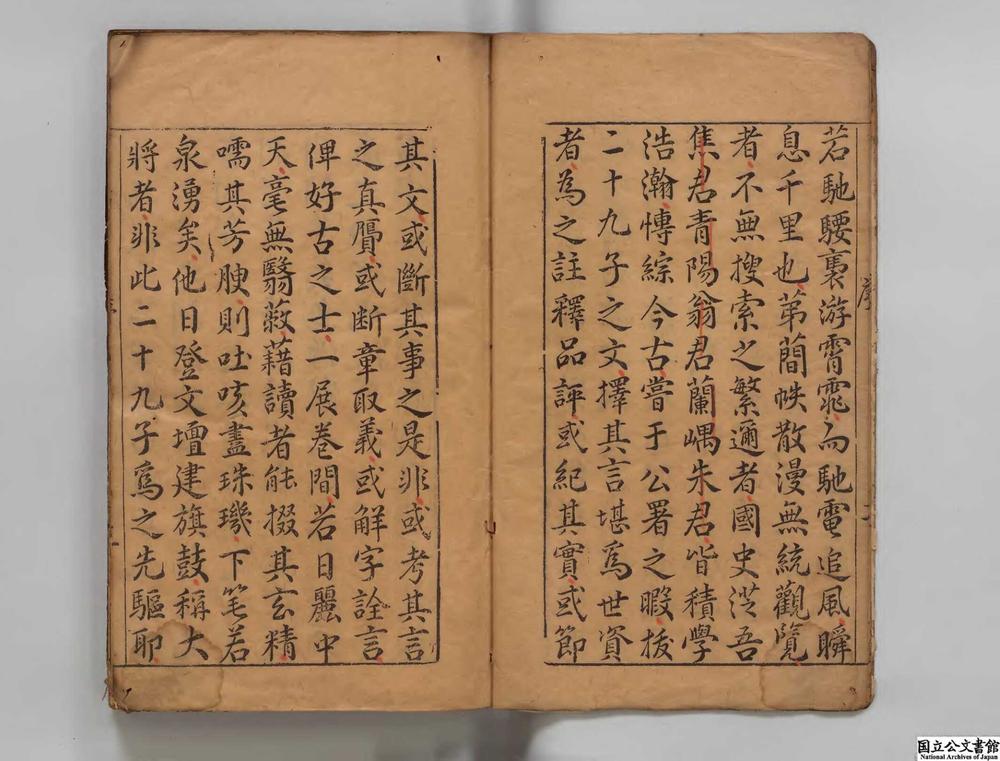 若馳騕褭游霄霏而馳電追風瞬
息千里也第蕳帙散漫無統觀覽
者不無搜索之繁邇者國史從吾
焦君青陽翁君蘭嵎朱君皆積學
浩瀚慱綜今古嘗于公署之暇拔
二十九子之文擇其言堪爲世資
者為之註釋品評或紀其實或節
其文或斷其事之是非或考其言
之真贋或断章取義或解字詮言
俾好古之士一展巻間若日麗中
天毫無翳蔽藉讀者能掇其玄精
嚅其芳腴則吐咳盡珠璣下筆若
泉湧矣他日登文壇建旗鼓稱大
將者非此二十九子爲之先驅耶
序
二
国立公文書館
National Archives of Japan